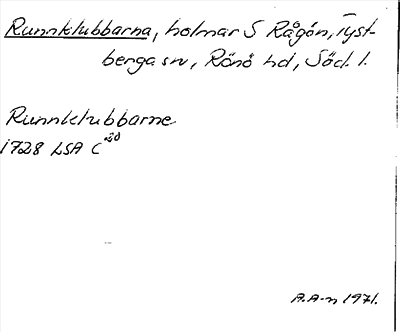 Runnklubbarna, holmar S Rågön, Tyst-
berga sn, Rönö hd, Södl.
Runnklubbarne
1728 LSA C 20
A.A-n 1971.